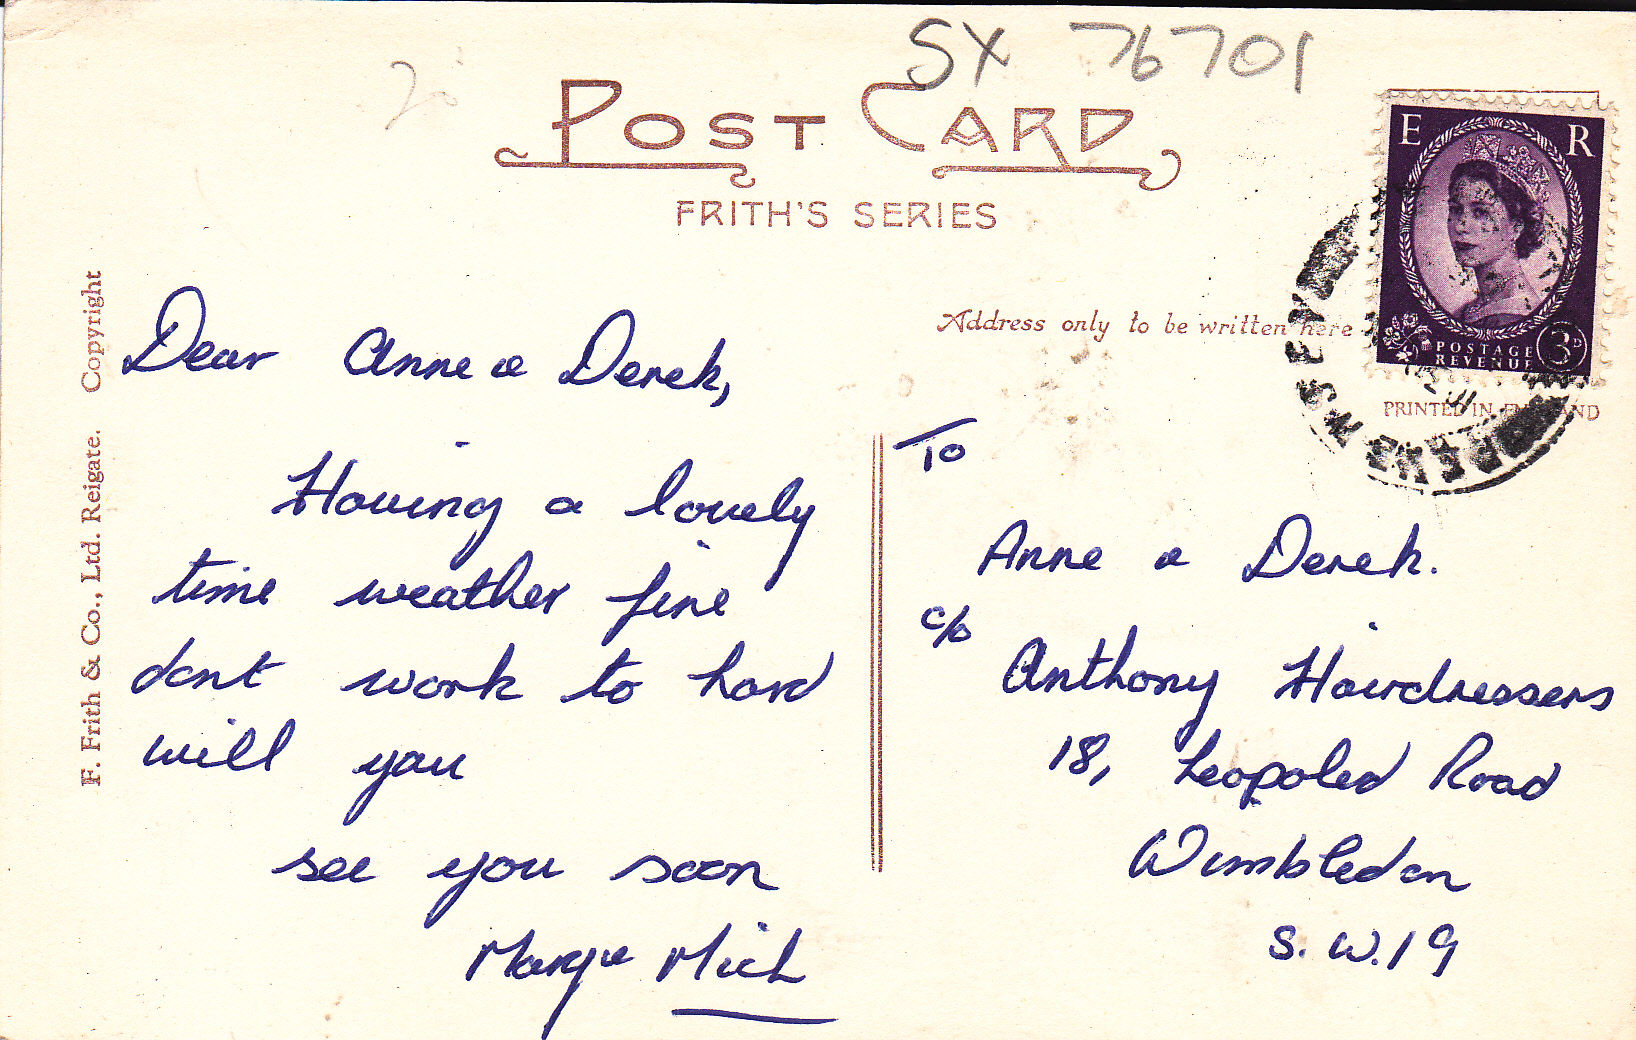 SX 76701
POST CARD
FRITH'S SERIES
E R
POSTAGE
REVENUE
3D
Address only to be written here
PRINTED IN ENGLAND
F. Frith & Co., Ltd. Reigate. Copyright
Dear Anne & Derek,
Having a lovely
time weather fine
dont work to hard
will you
see you soon
Mich
To
Anne & Derek.
c/o
Anthony Hairdressers
18, Leopoled Road
Wimbledon
S.W.19